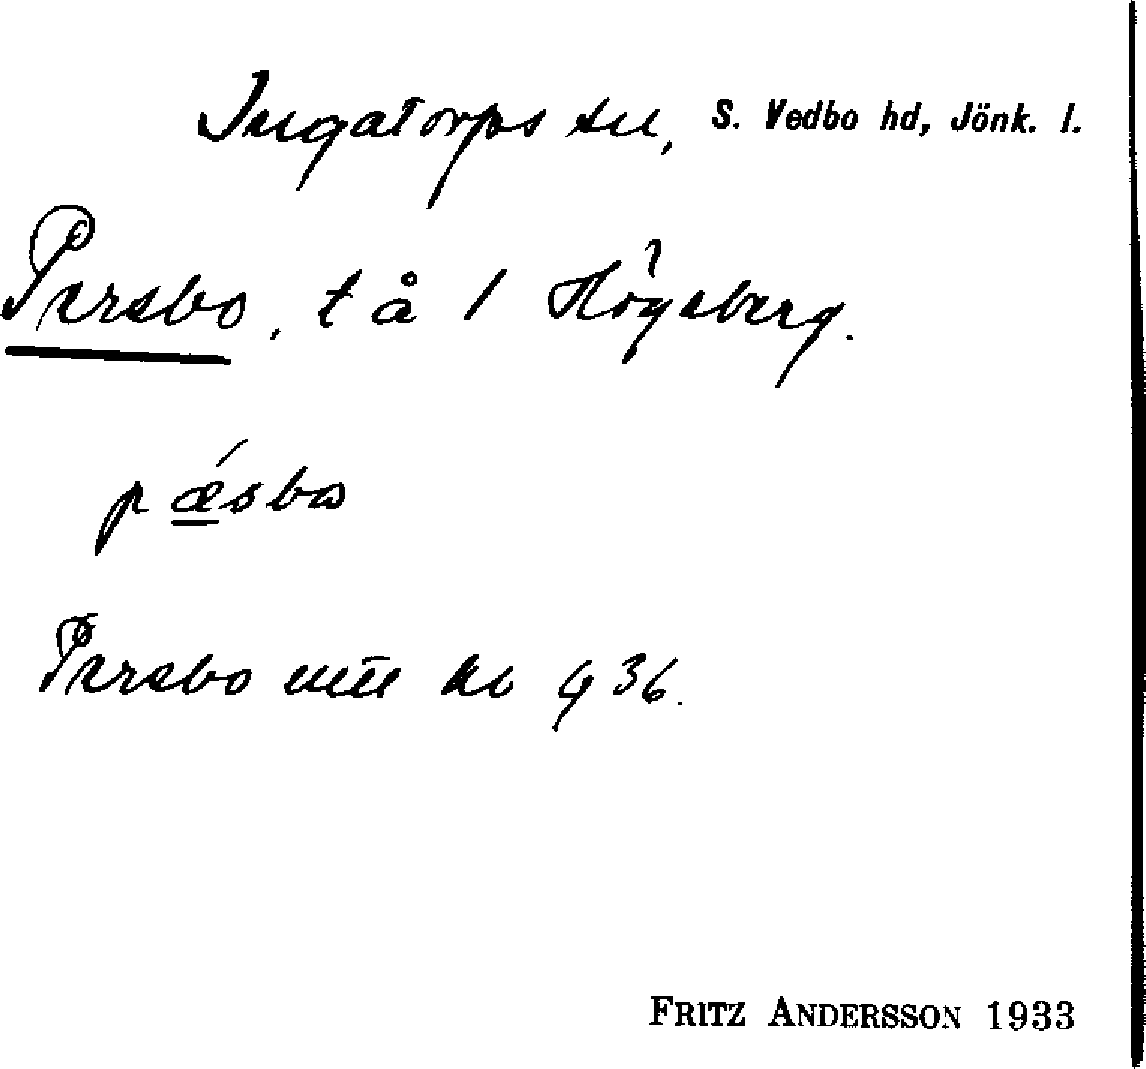 Ingatorps sn, S. Vedbo hd, Jönk. l.
Persbo, t å 1 Högsberg.
pǽsbo
Persbo
FRITZ ANDERSSON 1933